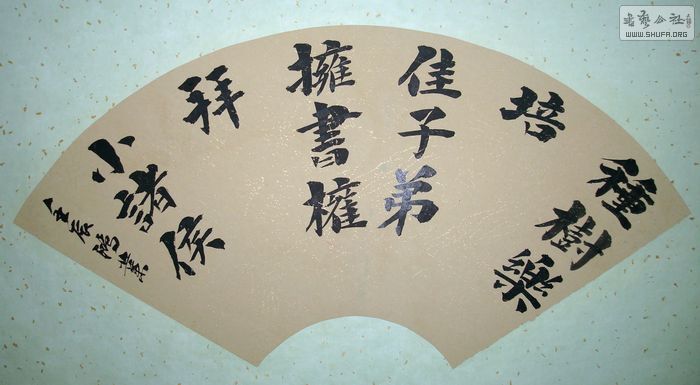 種樹樂
培
佳子弟
擁書權
拜
小諸侯
壬辰
書藝公社
WWW.SHUFA.ORG